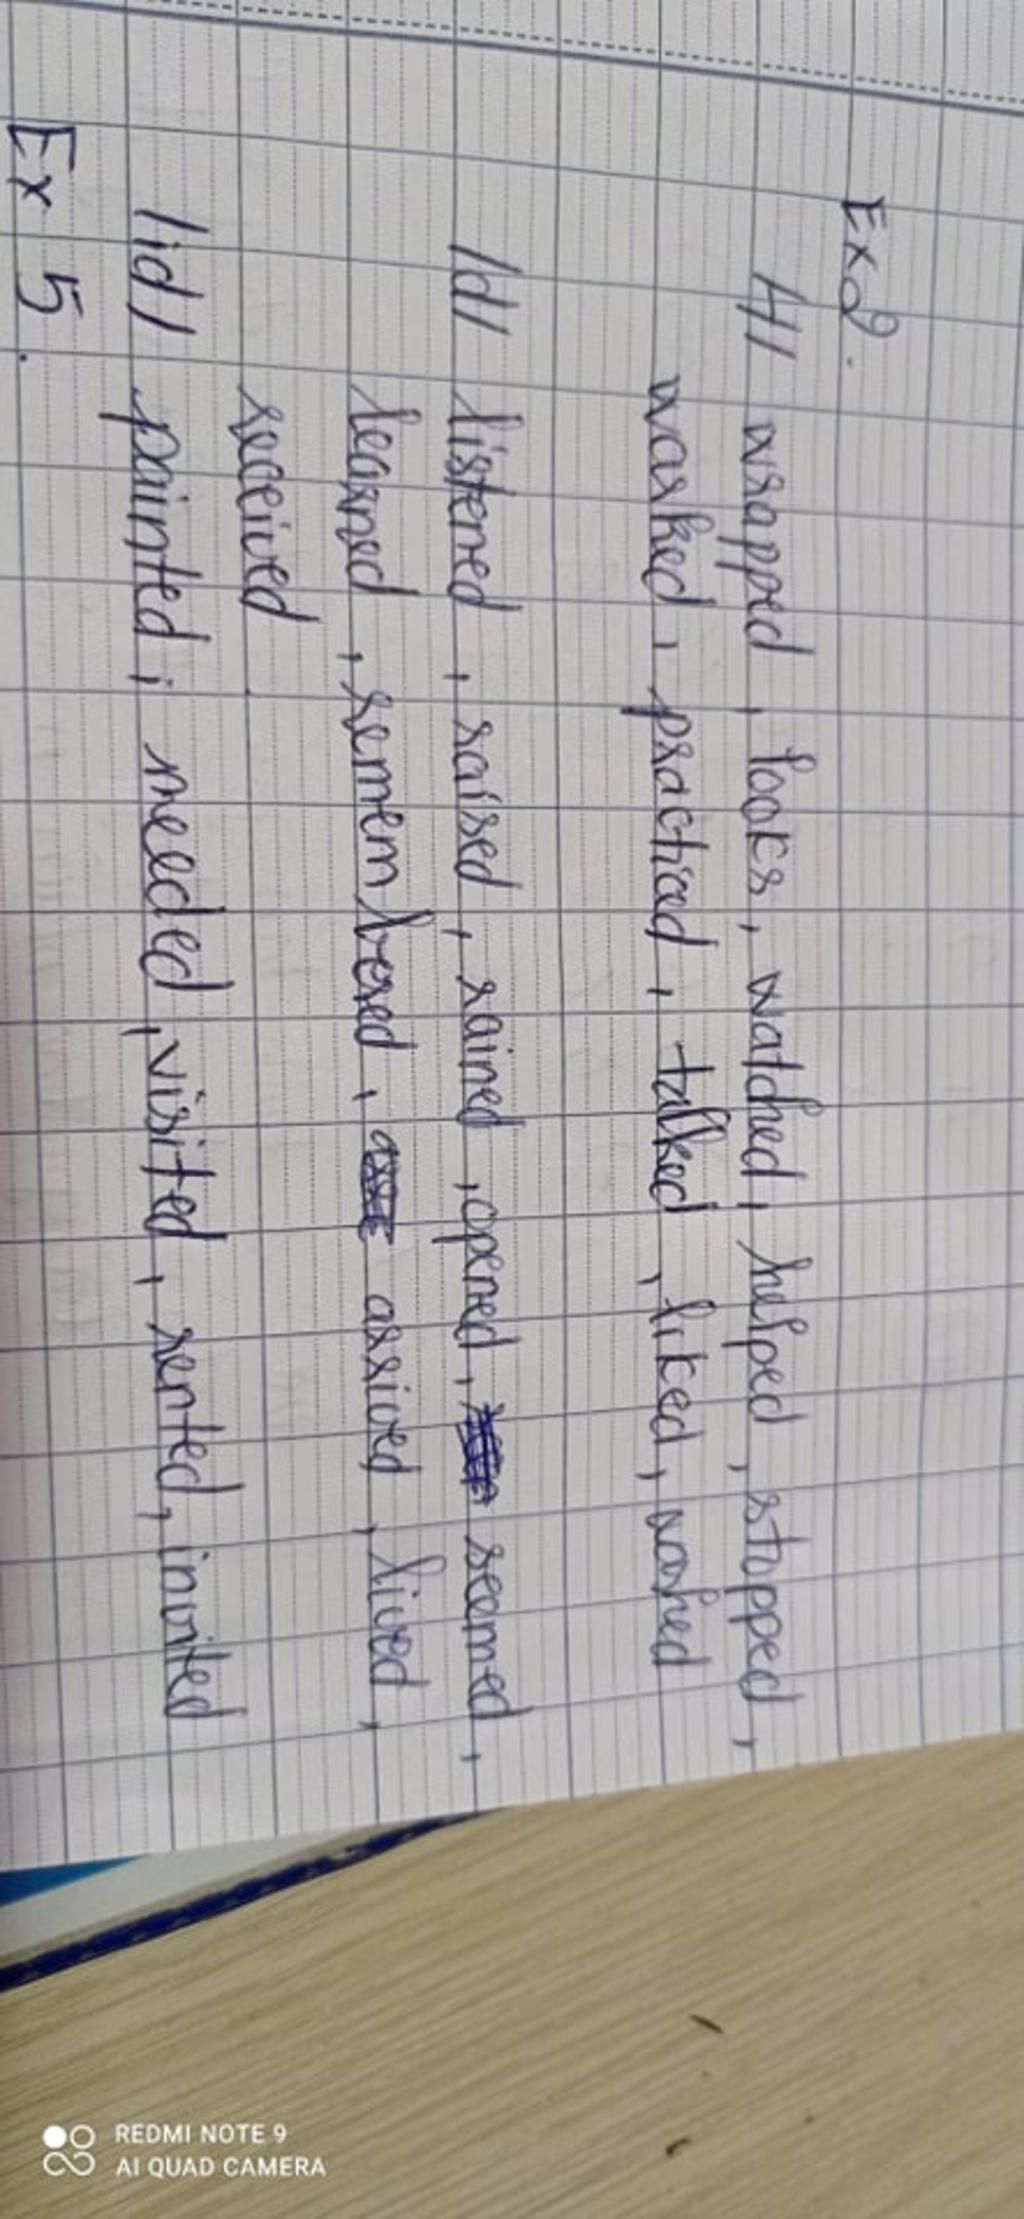 Ex 2.
/t/ wrapped, looks, watched, helped, stopped,
worked, practiced, talked, liked, washed
/d/ listened, raised, rained, opened, seemed,
learned, remembered, arrived, lived,
received
/id/ painted, needed, visited, rented, invited
Ex 5.
REDMI NOTE 9
AI QUAD CAMERA